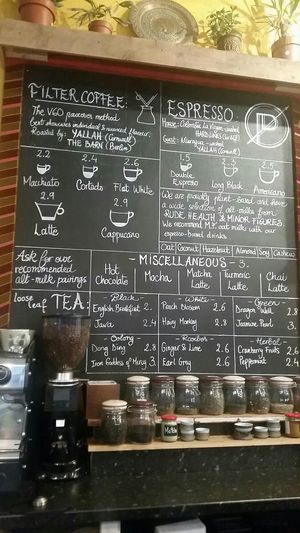 FILTER COFFEE:
The V60 pourover method
best showcases
Roasted by: YALLAH (Cornwall)
THE BARN (Berlin)
2.2
2.4
2.6
Macchiato
Cortado
Flat White
2.9
2.9
Latte
Cappuccino
ESPRESSO
House: Colombia La
HARD LINES
Guest: Nicaragua washed
YALLAH
1.5
2.3
2.5
Double Espresso
Long Black
Americano
We are proudly plant-based and have
a wide selection of alt milks from
RUDE HEALTH & MINOR FIGURES.
We recommend M.F. oat milk with our
espresso-based drinks.
Oat Coconut Hazelnut Almond Soy Cashew
Ask for our
recommended
alt-milk pairings
MISCELLANEOUS - 3.
Hot Chocolate
Mocha
Matcha Latte
Turmeric Latte
Chai Latte
loose leaf TEA:
Black
English Breakfast 2.
Java 2.4
White
Peach Blossom 2.6
Hairy Monkey 2.8
Green
Dragon Well 2.8
Jasmine Pearl 3.
Oolong
Dong Ding 2.8
Iron Goddess of Mercy 3.
Rooibos
Ginger & Lime 2.6
Earl Grey 2.6
Herbal
Cranberry Fruits 2.6
Peppermint 2.4